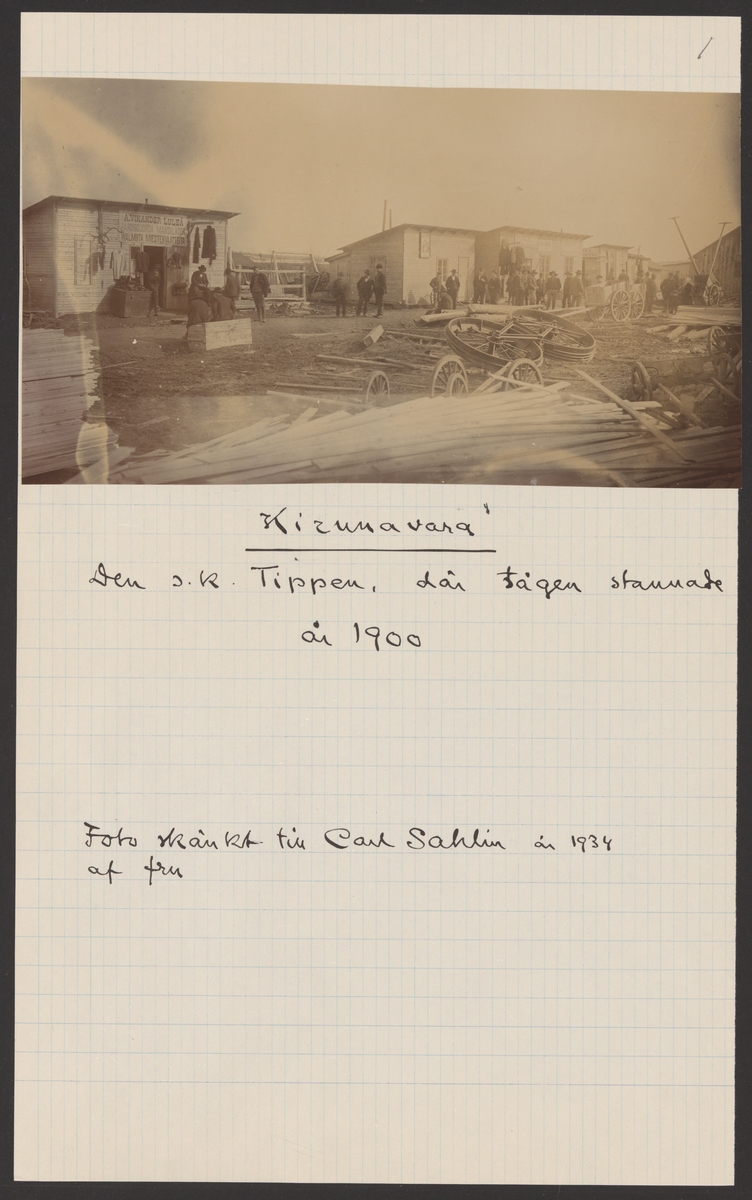 1
A. VIKANDER LULEÅ
Kirunavara
Den s.k. Tippen, där tågen stannade
år 1900
Foto skänkt till Carl Sahlin år 1934
af fru